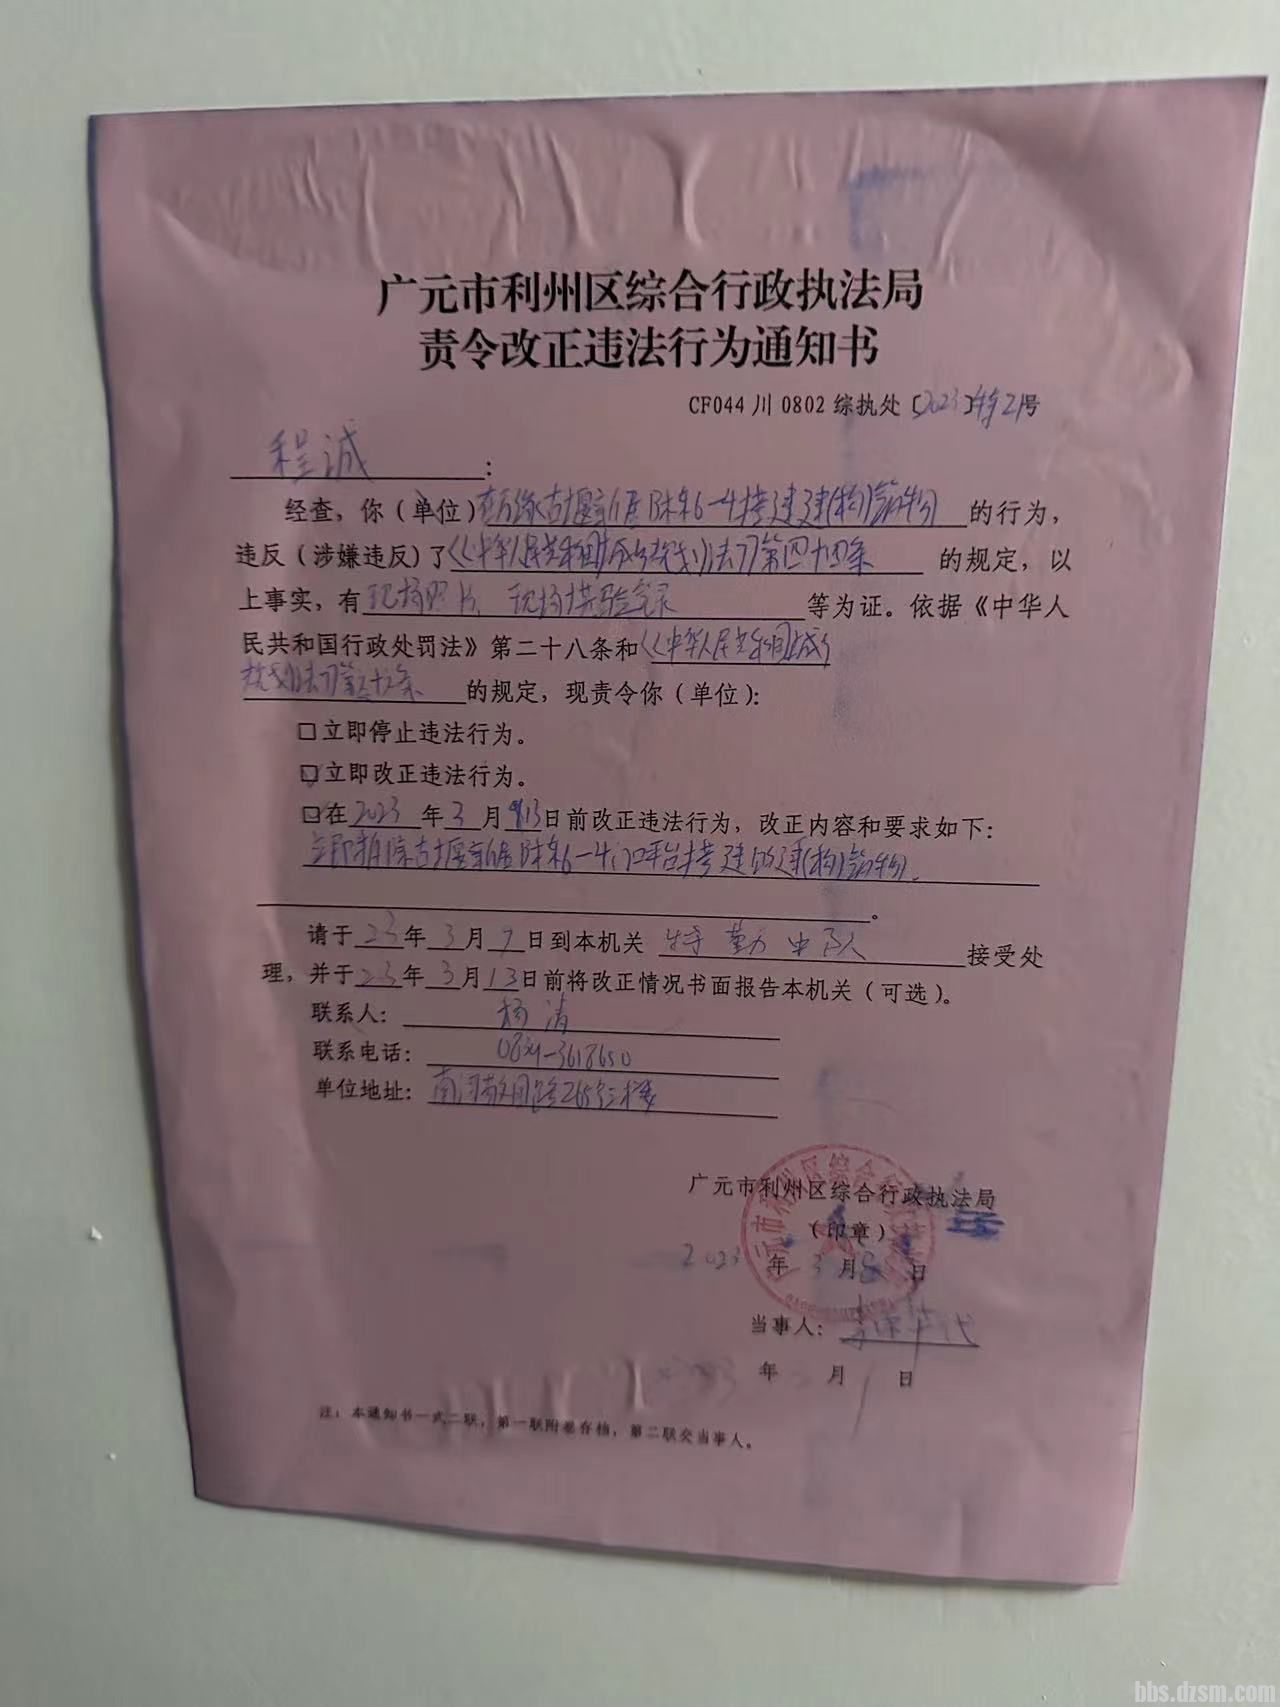 广元市利州区综合行政执法局
责令改正违法行为通知书
CF044川0802综执处〔2023〕特21号
程诚:
经查,你(单位)在万缘古堰新居B栋6-4搭建建(构)筑物的行为,
违反(涉嫌违反)了《中华人民共和国城乡规划法》第四十四条的规定,以
上事实,有现场照片、现场勘验笔录等为证。依据《中华人
民共和国行政处罚法》第二十八条和《中华人民共和国城乡
规划法》第 条的规定,现责令你(单位):
□立即停止违法行为。
☑立即改正违法行为。
☑在2023年3月13日前改正违法行为,改正内容和要求如下:
立即拆除古堰新居B栋6-4门口平台搭建的建(构)筑物。
。
请于23年3月7日到本机关特勤中队接受处
理,并于23年3月13日前将改正情况书面报告本机关(可选)。
联系人:杨涛
联系电话:0839-3618650
单位地址:南河 路265号三楼
广元市利州区综合行政执法局
(印章)
2023年3月8日
当事人:
年 月 日
注:本通知书一式二联,第一联附卷存档,第二联交当事人。
bbs.dzsm.com